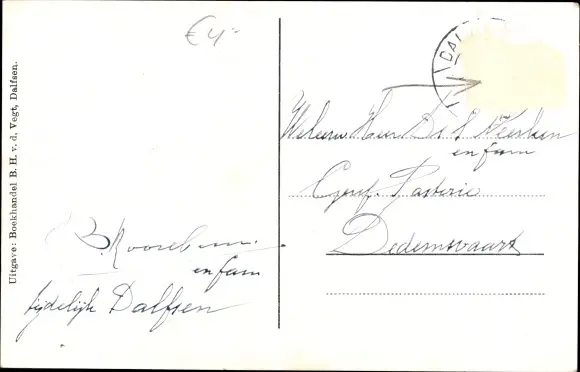 €4,-
DAL
Uitgave: Boekhandel B. H. v. d. Vegt, Dalfsen.
Weleerw Heer Ds
en fam
Geref. Pastorie
Dedemsvaart
B. Roosebum
en fam
tijdelijk Dalfsen